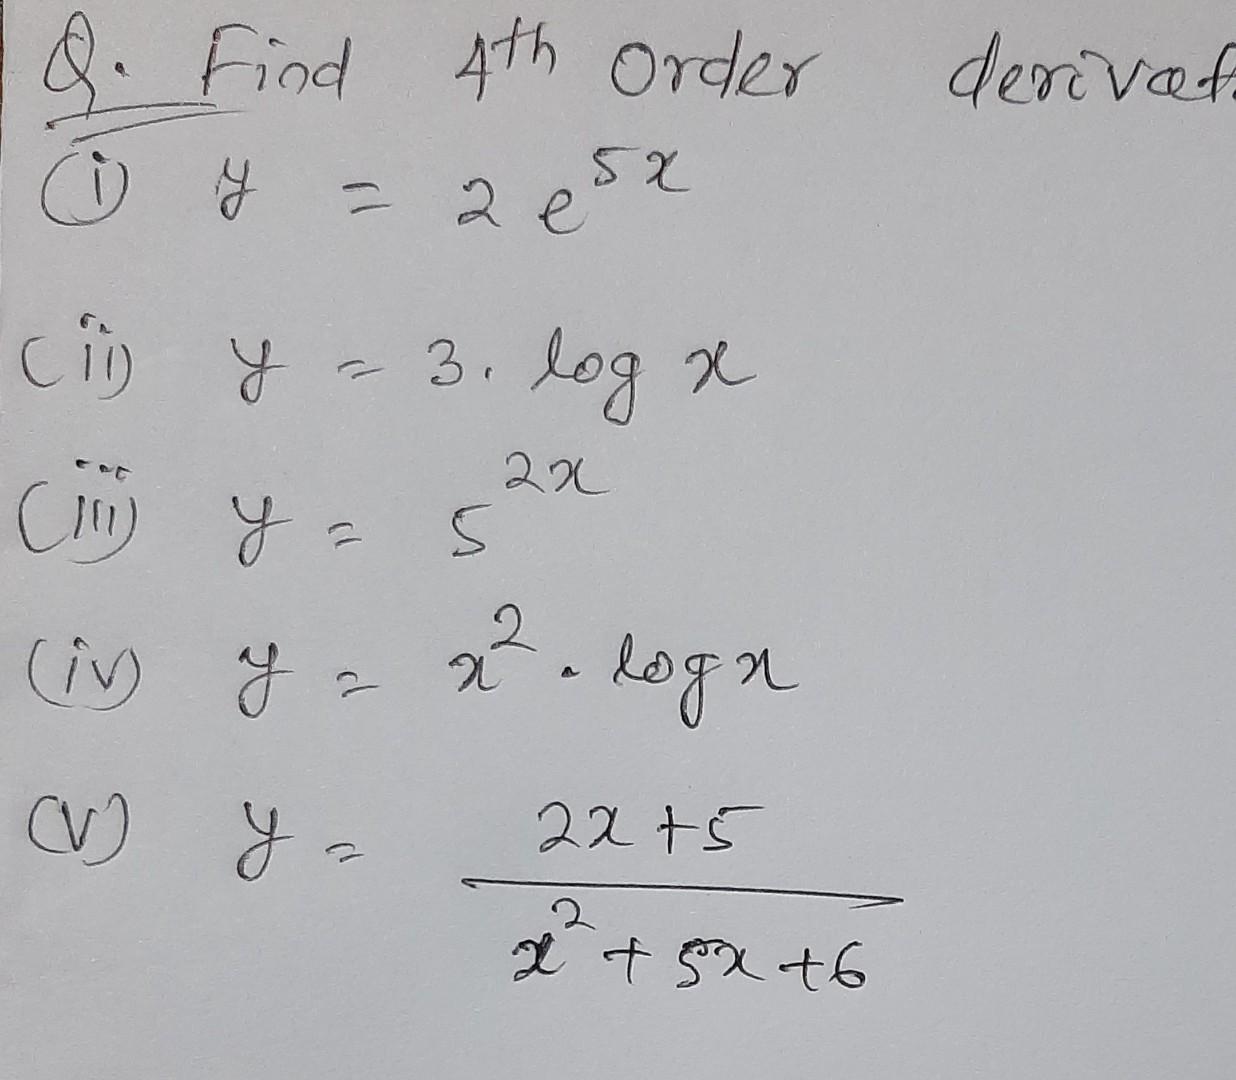 Q. Find 4th order
(i) y = 2 e^{5x}
(ii) y = 3. log x
(iii) y = 5^{2x}
(iv) y = x^2 . log x
(v) y = \frac{2x+5}{x^2+5x+6}